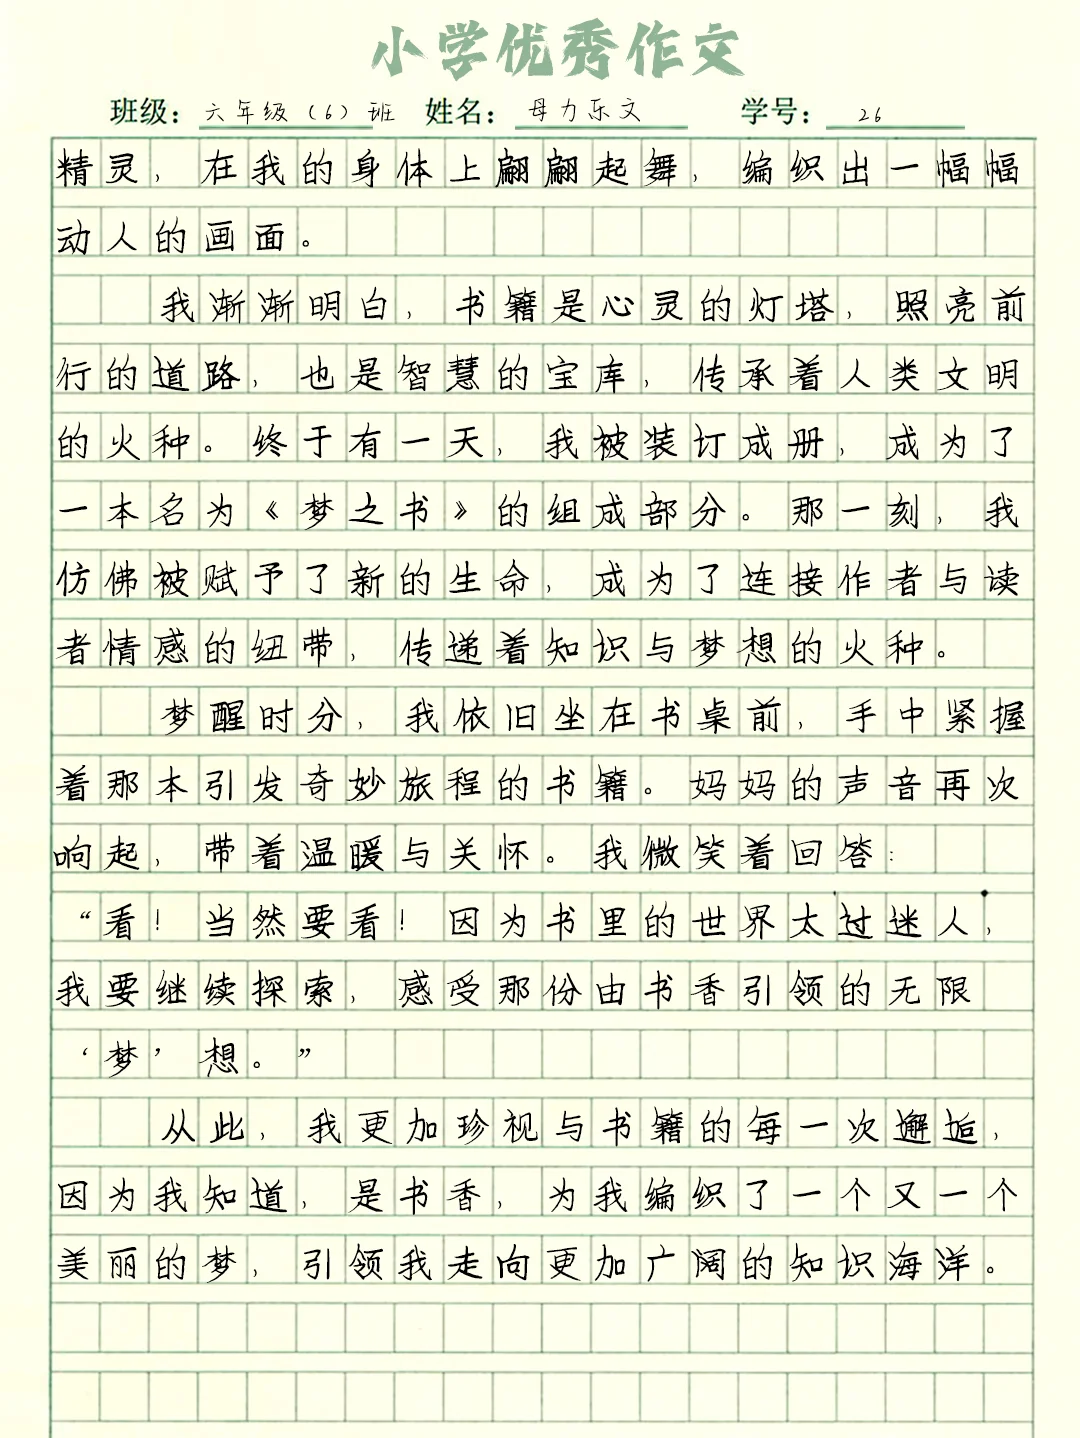 小学优秀作文
班级：六年级（6）班 姓名：母力乐文 学号：26
精灵，在我的身体上翩翩起舞，编织出一幅幅
动人的画面。
我渐渐明白，书籍是心灵的灯塔，照亮前
行的道路，也是智慧的宝库，传承着人类文明
的火种。终于有一天，我被装订成册，成为了
一本名为《梦之书》的组成部分。那一刻，我
仿佛被赋予了新的生命，成为了连接作者与读
者情感的纽带，传递着知识与梦想的火种。
梦醒时分，我依旧坐在书桌前，手中紧握
着那本引发奇妙旅程的书籍。妈妈的声音再次
响起，带着温暖与关怀。我微笑着回答：
“看！当然要看！因为书里的世界太过迷人，
我要继续探索，感受那份由书香引领的无限
‘梦’想。”
从此，我更加珍视与书籍的每一次邂逅，
因为我知道，是书香，为我编织了一个又一个
美丽的梦，引领我走向更加广阔的知识海洋。